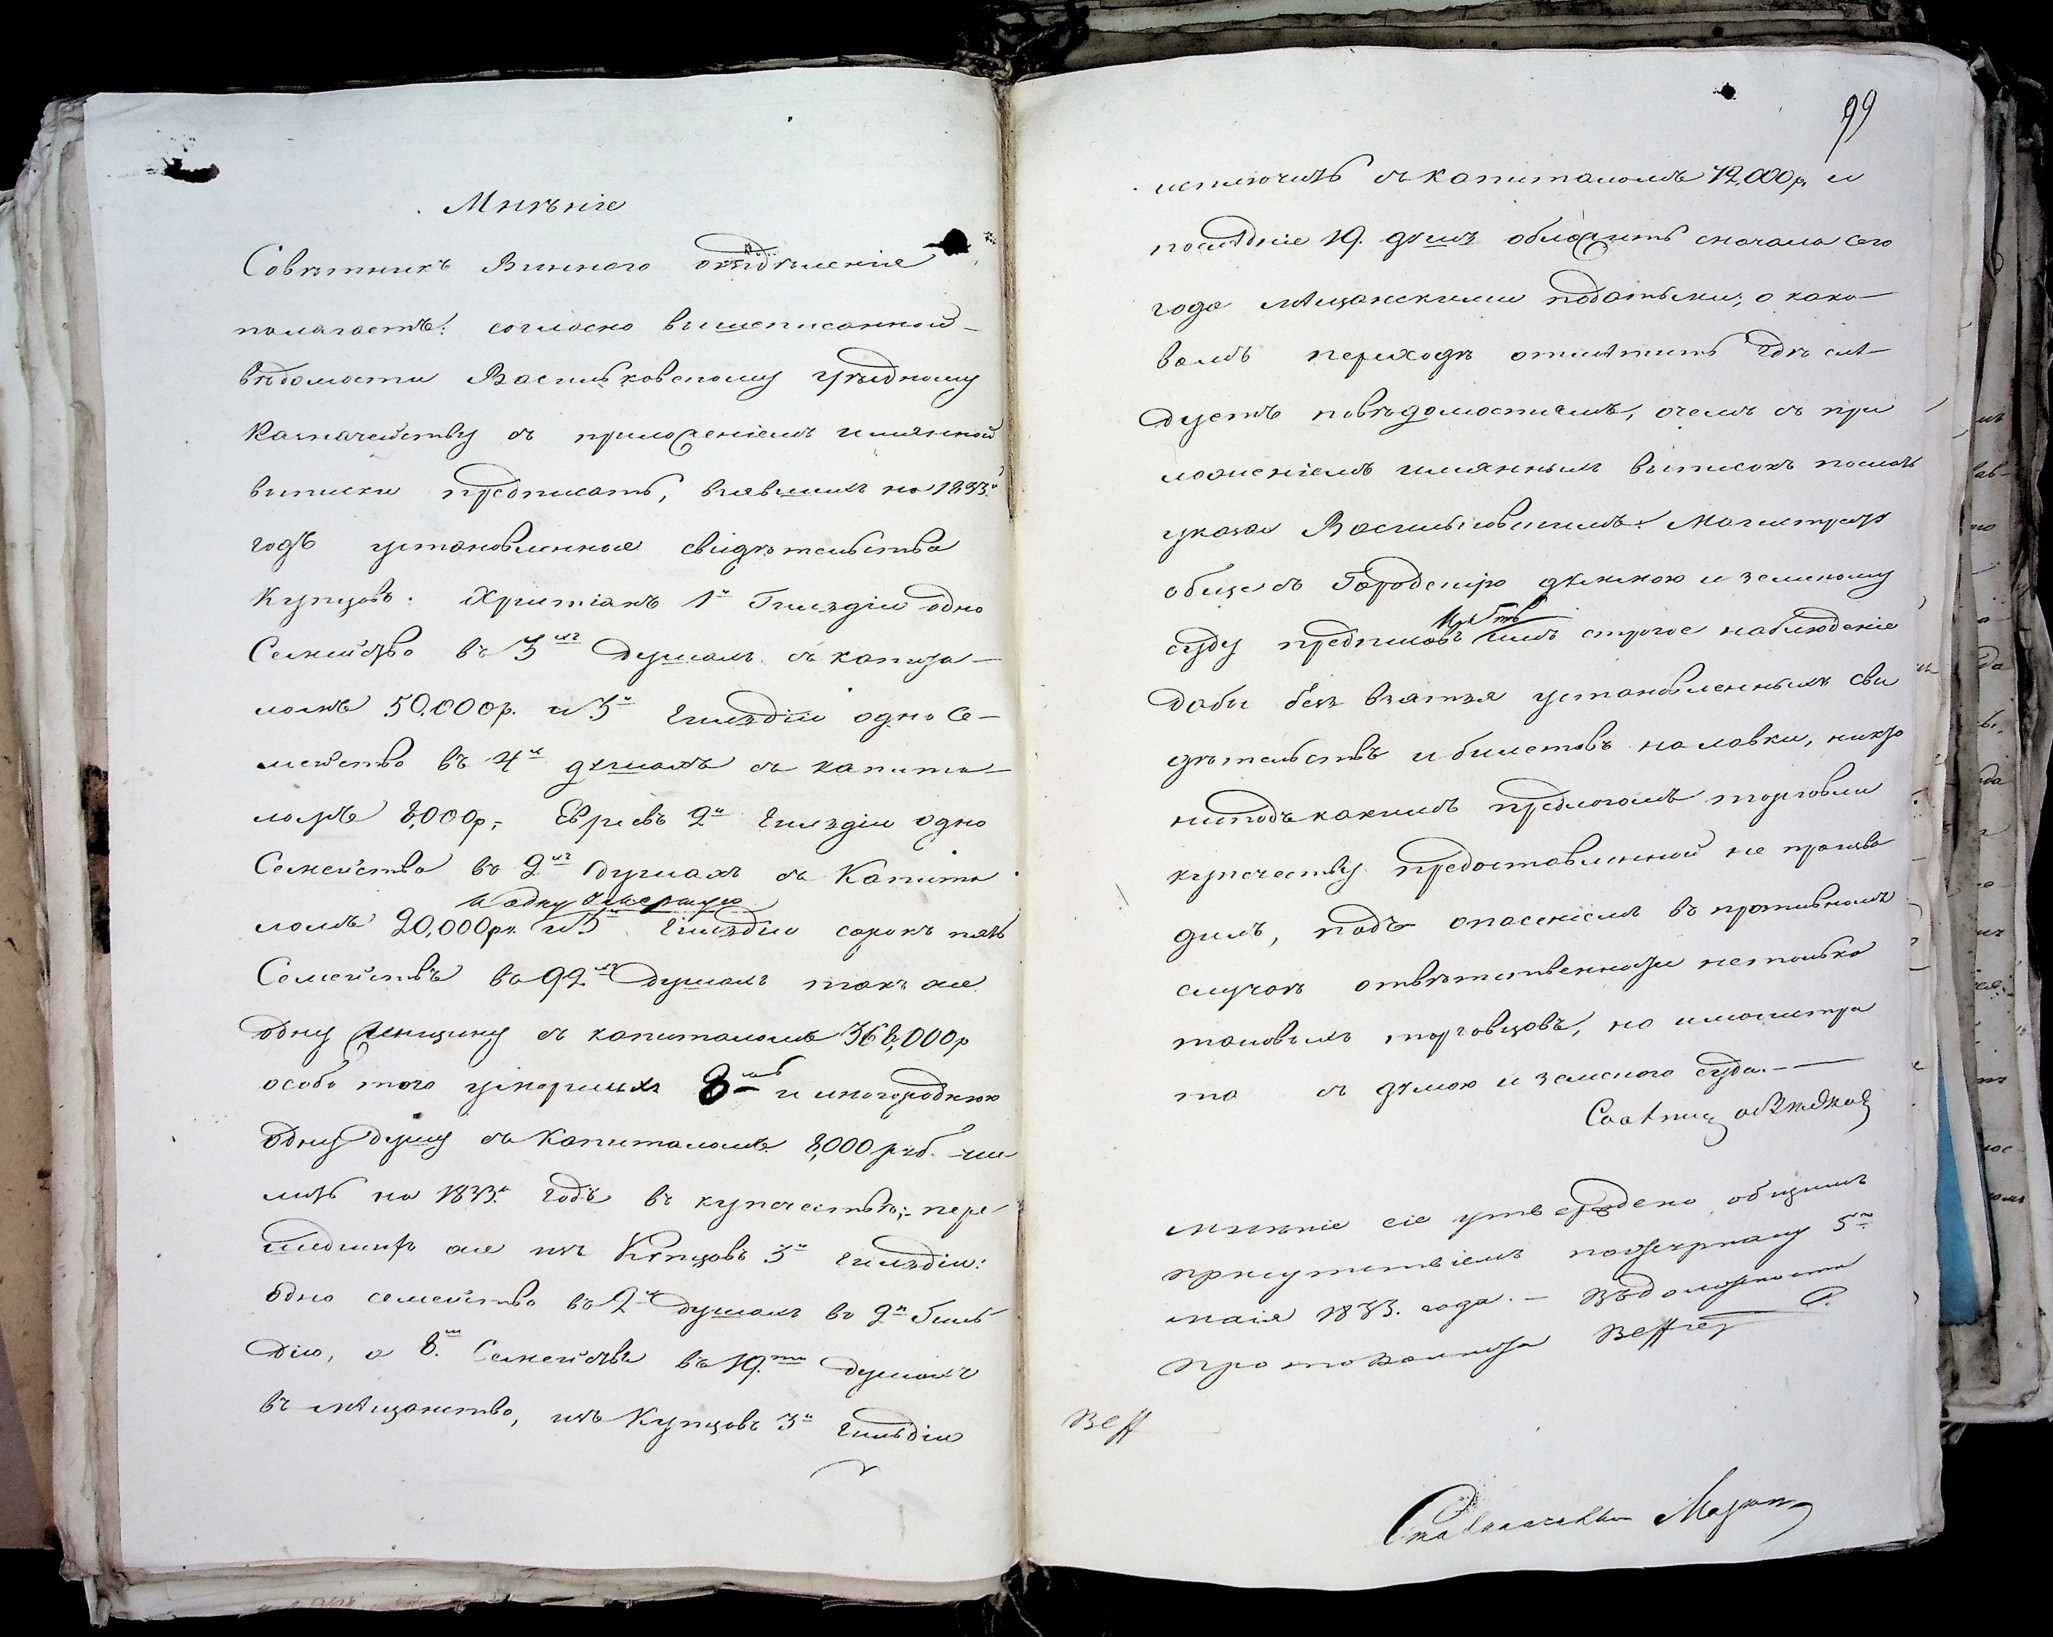 Мнѣніе
Совѣтникъ Виннаго отдѣленія
полагаетъ: согласно вышеписанной
вѣдомости Васильковскому уѣздному
Казначейству съ приложеніемъ имянной
выписки предписать, взявшихъ на 1833й
годъ установленныя свидѣтельства
Купцовъ: Христіанъ 1й Гильдіи одно
Семейство въ 3хъ душахъ съ капита-
ломъ 50,000р. и 3й гильдіи одно Се-
мейство въ 4х душахъ съ капита-
ломъ 8,000р., Евреевъ 2й гильдіи одно
Семейство въ 2хъ душахъ съ Капита
и одну умершую
ломъ 20,000р. и 3й гильдіи сорокъ пять
Семействъ въ 92хъ душахъ такъ же
одну женщину съ капиталомъ 368,000р
особо того умершихъ 8 и иногороднюю
одну душу съ Капиталомъ 8,000 руб. чи
лить на 1833й годъ въ купечествѣ; пере
шедшихъ же изъ Купцовъ 3й гильдіи:
одно семейство въ 2хъ душахъ во 2й Гиль
дію, а 8. Семействъ въ 19.ти душахъ
въ мѣщанство, изъ Купцовъ 3й гильдіи
99
исключить съ капиталомъ 72,000р. и
послѣдніе 19. душъ обложить сначала сего
года мѣщанскими податьми; о како-
вомъ переходѣ отмѣтить гдѣ слѣ-
дуетъ по вѣдомостямъ, о чемъ съ при
ложеніемъ имянныхъ выписокъ послать
указы Васильковскимъ: Магистрату
обще съ Городскою думою и земскому
суду предписавъ имъ строгое наблюденіе
дабы безъ взятья установленныхъ сви
дѣтельствъ и билетовъ на лавки, никто
ни подъ какимъ предлогомъ торговли
купечеству предоставленной не произво
дилъ, подъ опасеніемъ въ противномъ
случаѣ отвѣтственности не только
таковыхъ торговцовъ, но и магистра
та съ думою и земского суда.
мнѣніе сіе утверждено общимъ
присутствіемъ по журналу 5го
маія 1833. года. — Въ должности
протоколиста